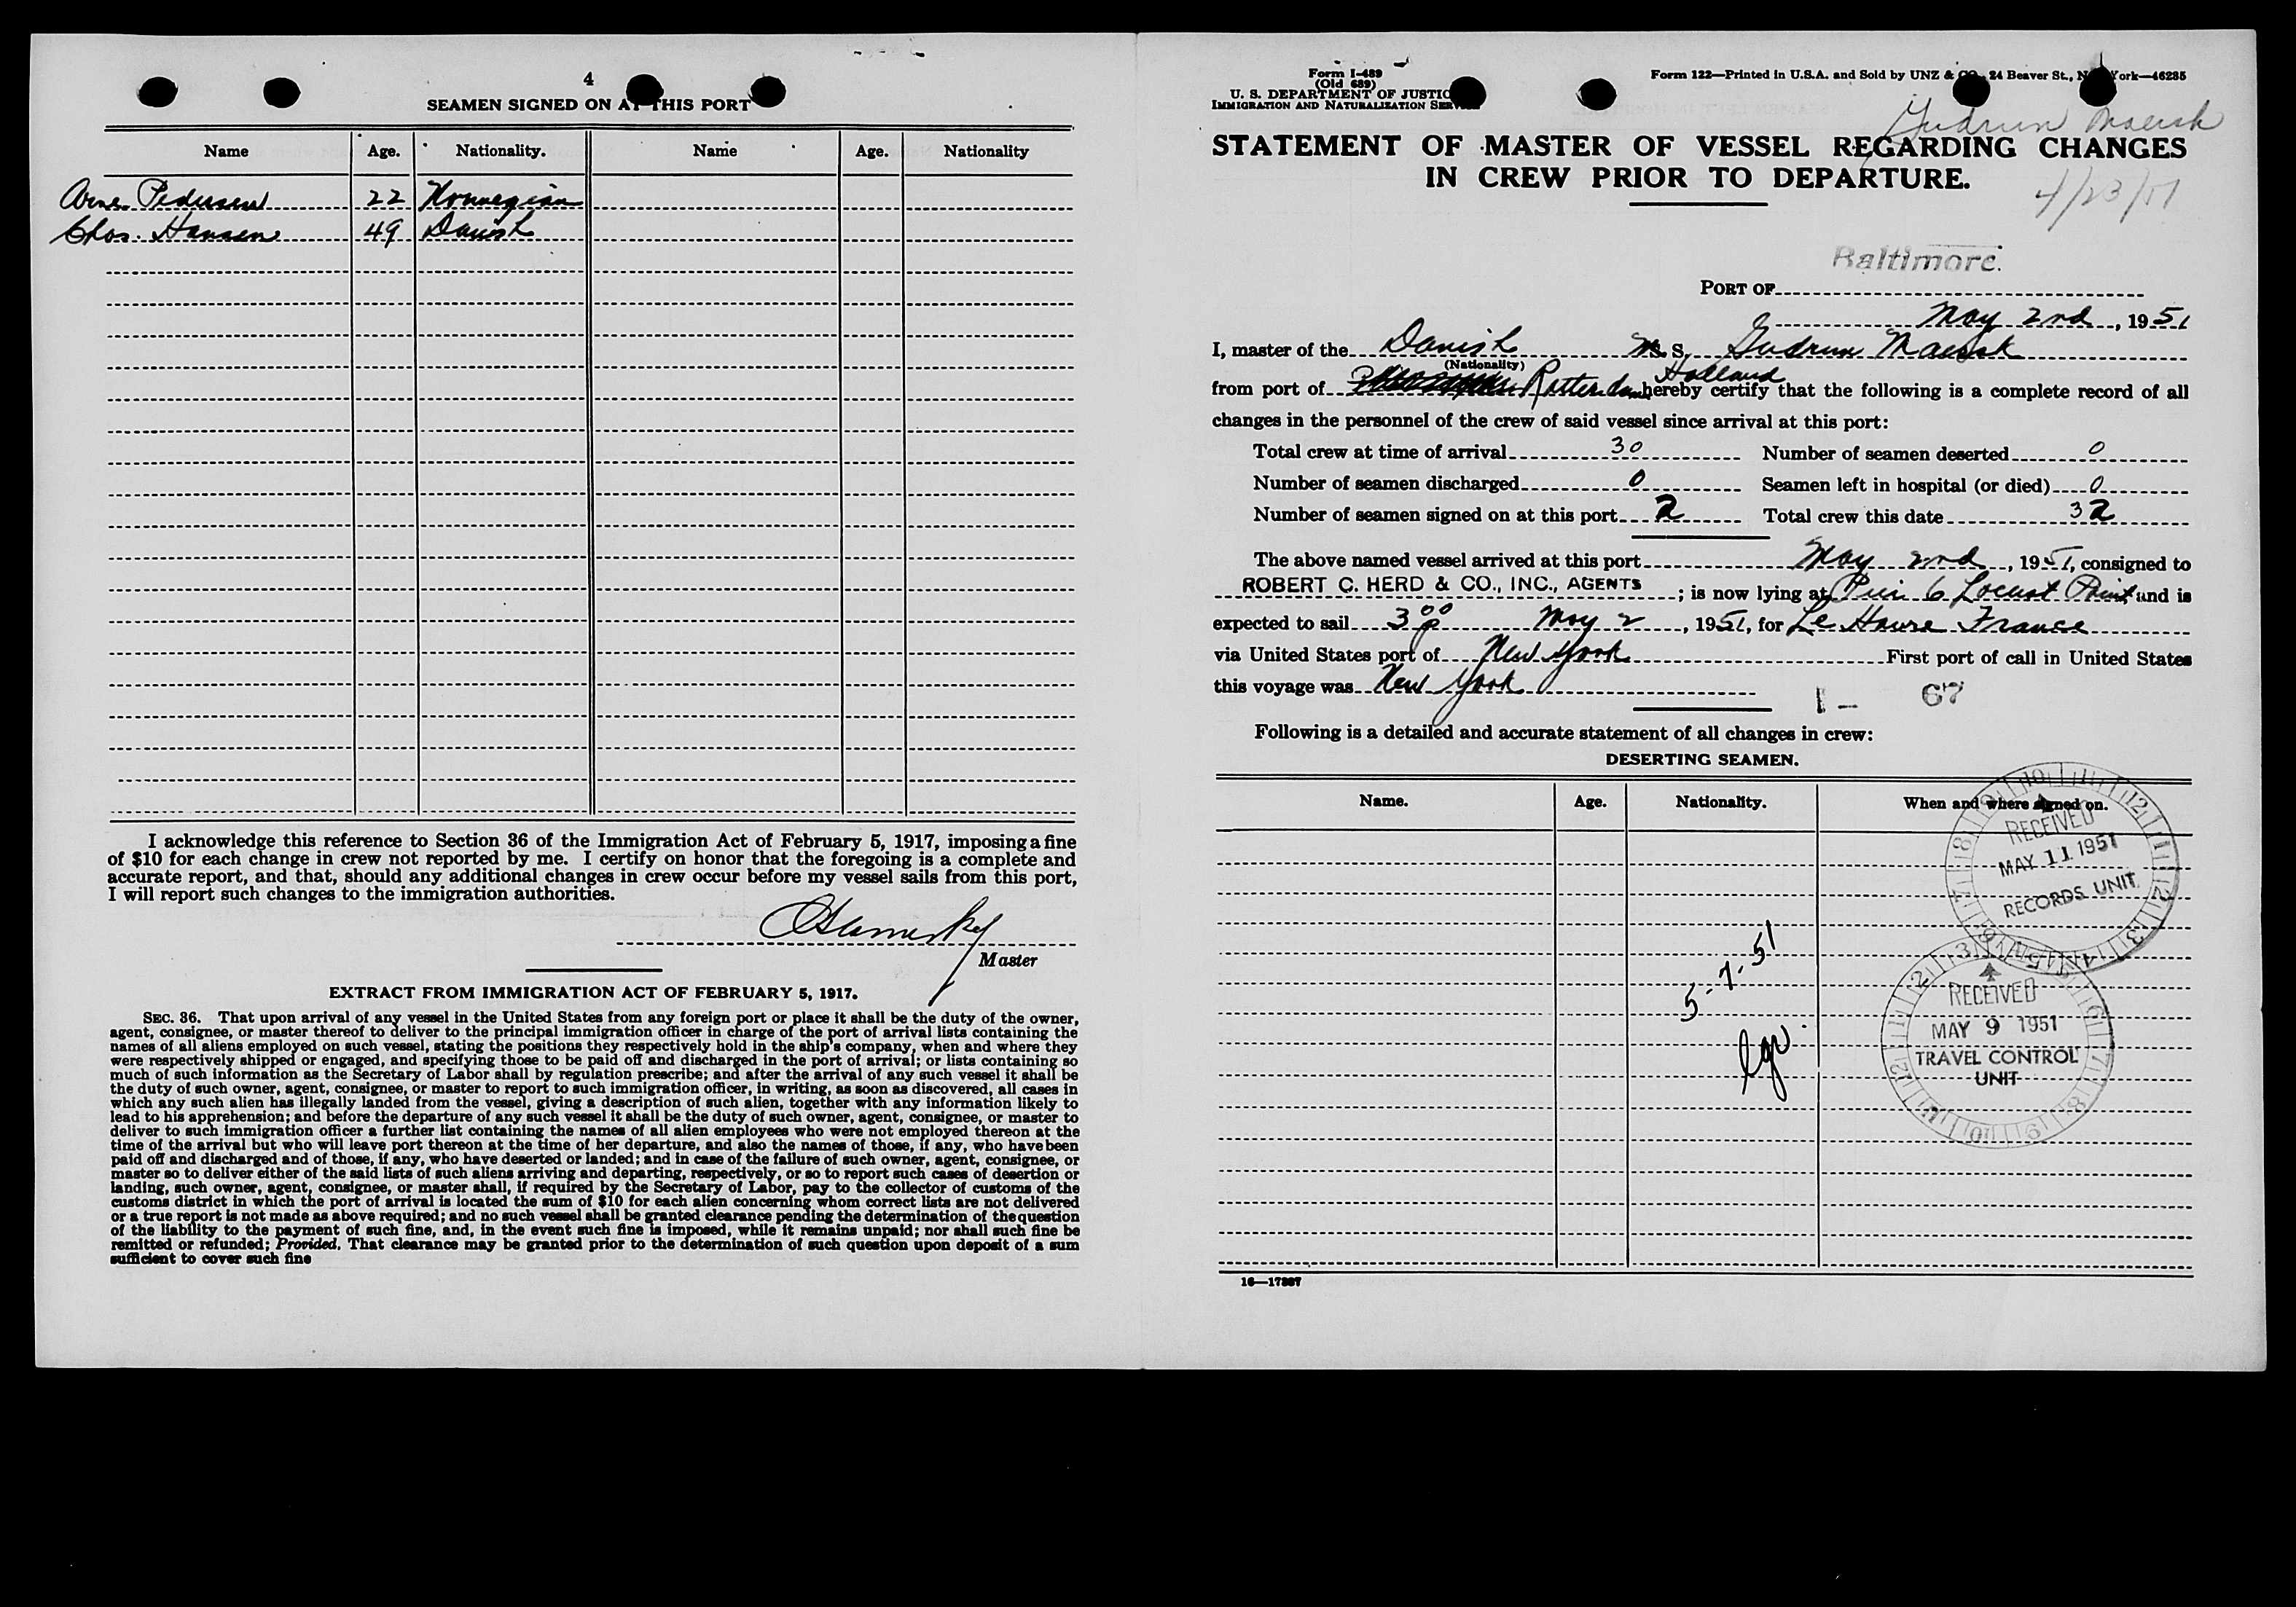 4
SEAMEN SIGNED ON AT THIS PORT
Name Age. Nationality. Name Age. Nationality
Arne Pedersen 22 Norwegian
Chas. Hansen 49 Danish
I acknowledge this reference to Section 36 of the Immigration Act of February 5, 1917, imposing a fine
of $10 for each change in crew not reported by me. I certify on honor that the foregoing is a complete and
accurate report, and that, should any additional changes in crew occur before my vessel sails from this port,
I will report such changes to the immigration authorities.
Master
EXTRACT FROM IMMIGRATION ACT OF FEBRUARY 5, 1917.
SEC. 36. That upon arrival of any vessel in the United States from any foreign port or place it shall be the duty of the owner,
agent, consignee, or master thereof to deliver to the principal immigration officer in charge of the port of arrival lists containing the
names of all aliens employed on such vessel, stating the positions they respectively hold in the ship's company, when and where they
were respectively shipped or engaged, and specifying those to be paid off and discharged in the port of arrival; or lists containing so
much of such information as the Secretary of Labor shall by regulation prescribe; and after the arrival of any such vessel it shall be
the duty of such owner, agent, consignee, or master to report to such immigration officer, in writing, as soon as discovered, all cases in
which any such alien has illegally landed from the vessel, giving a description of such alien, together with any information likely to
lead to his apprehension; and before the departure of any such vessel it shall be the duty of such owner, agent, consignee, or master to
deliver to such immigration officer a further list containing the names of all alien employees who were not employed thereon at the
time of the arrival but who will leave port thereon at the time of her departure, and also the names of those, if any, who have been
paid off and discharged and of those, if any, who have deserted or landed; and in case of the failure of such owner, agent, consignee, or
master so to deliver either of the said lists of such aliens arriving and departing, respectively, or so to report such cases of desertion or
landing, such owner, agent, consignee, or master shall, if required by the Secretary of Labor, pay to the collector of customs of the
customs district in which the port of arrival is located the sum of $10 for each alien concerning whom correct lists are not delivered
or a true report is not made as above required; and no such vessel shall be granted clearance pending the determination of the question
of the liability to the payment of such fine, and, in the event such fine is imposed, while it remains unpaid; nor shall such fine be
remitted or refunded; Provided, That clearance may be granted prior to the determination of such question upon deposit of a sum
sufficient to cover such fine
Form I-489
(Old 689)
U. S. DEPARTMENT OF JUSTICE
IMMIGRATION AND NATURALIZATION SERVICE
Form 122—Printed in U.S.A. and Sold by UNZ & CO., 24 Beaver St., New York—46285
Gudrun Maersk
STATEMENT OF MASTER OF VESSEL REGARDING CHANGES
IN CREW PRIOR TO DEPARTURE.
4/23/51
Baltimore.
PORT OF
May 2nd, 1951
I, master of the Danish M. S. Gudrun Maersk
(Nationality) Holland
from port of Rotterdam hereby certify that the following is a complete record of all
changes in the personnel of the crew of said vessel since arrival at this port:
Total crew at time of arrival 30 Number of seamen deserted 0
Number of seamen discharged 0 Seamen left in hospital (or died) 0
Number of seamen signed on at this port 2 Total crew this date 32
The above named vessel arrived at this port May 2nd, 1951, consigned to
ROBERT C. HERD & CO., INC., AGENTS; is now lying at Pier 6 Locust Point and is
expected to sail 3 00 p May 2, 1951, for Le Havre France
via United States port of New York First port of call in United States
this voyage was New York
1 - 67
Following is a detailed and accurate statement of all changes in crew:
DESERTING SEAMEN.
Name. Age. Nationality. When and where signed on.
RECEIVED
MAY 11 1951
RECORDS UNIT
5-7-51
RECEIVED
MAY 9 1951
TRAVEL CONTROL
UNIT
16—17387